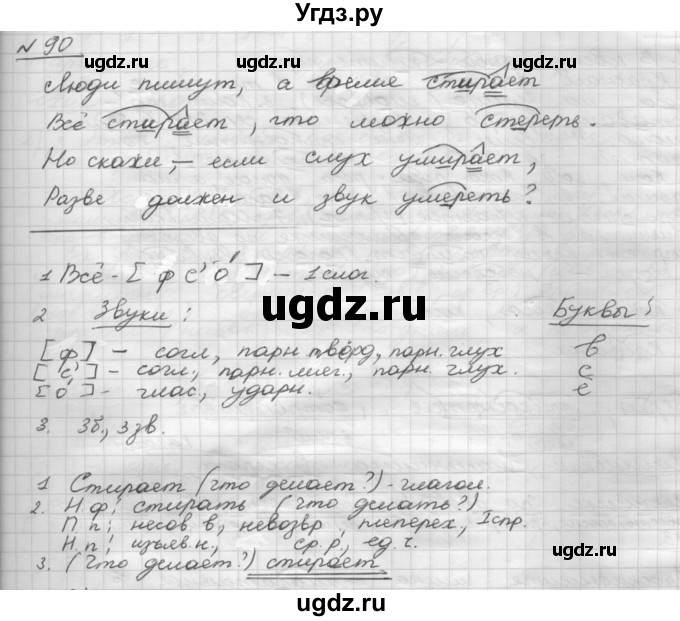 Угдз.ру
№ 90
ugdz.ru ugdz.ru
Люди пишут, а время стирает
Всё стирает, что можно стереть.
Но скажи, – если слух умирает,
Разве должен и звук умереть?
ugdz.ru ugdz.ru
1 Всё - [ф с' о'] – 1 слог.
2 Звуки: Буквы:
ugdz.ru
[ф] – согл, парн твёрд, парн. глух в
[с'] – согл., парн. мяг., парн. глух. с
[о'] – глас, ударн. ё
3. 3б., 3 зв.
ugdz.ru ugdz.ru
1 Стирает (что делает?) - глагол.
2. Н.ф; стирать (что делать?)
П.п; несов. в, невозвр, переход, I спр.
Н.п; изъяв. н, ср. р, ед. ч.
3. (что делает?) стирает
ugdz.ru ugdz.ru
ugdz.ru